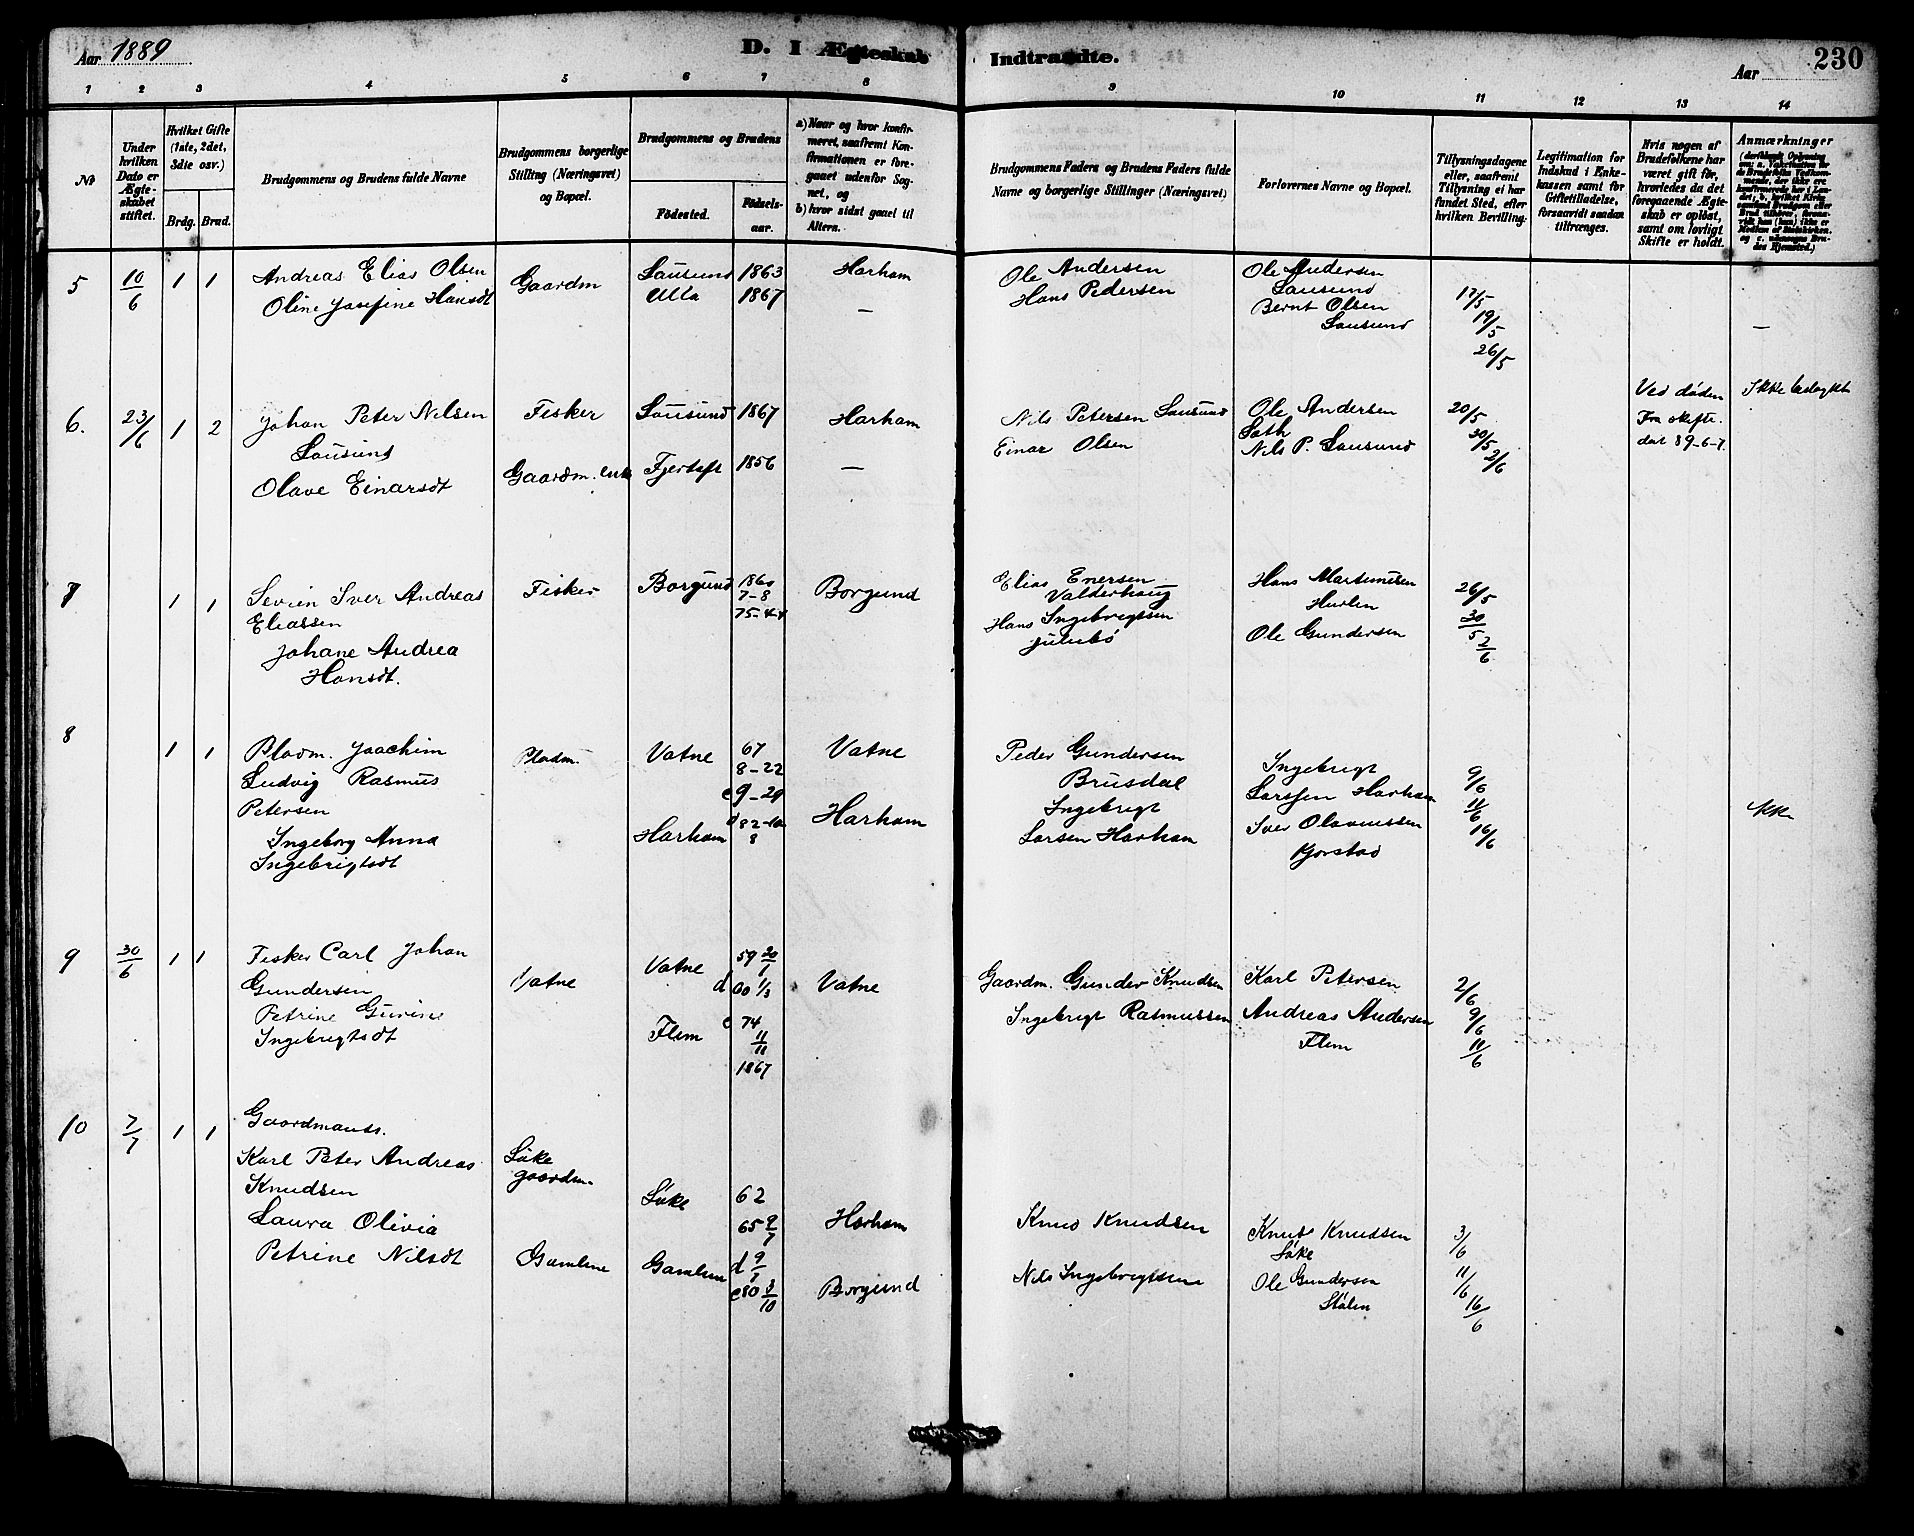 Aar 1889
D. I Ægteskab Indtraadte.
Aar
230
1 2 3 4 5 6 7 8 9 10 11 12 13 14
No
Under hvilken Dato er Ægteskabet stiftet.
Hvilket Gifte (1ste, 2det, 3die osv.)
Brdg. Brud.
Brudgommens og Brudens fulde Navne
Brudgommens borgerlige Stilling (Næringsvei) og Bopæl.
Brudgommens og Brudens
Födested.
Födselsaar.
a) Naar og hvor konfirmeret, saafremt Konfirmationen er foregaaet udenfor Sognet, og
b) hvor sidst gaaet til Alters.
Brudgommens Faders og Brudens Faders fulde Navne og borgerlige Stillinger (Næringsvei)
Forlovernes Navne og Bopæl.
Tillysningsdagene eller, saafremt Tillysning ei har fundet Sted, efter hvilken Bevilling.
Legitimation for Indskud i Enkekassen samt for Giftetilladelse, forsaavidt saadan tiltrænges.
Hvis nogen af Brudefolkene har været gift för, hvorledes da det foregaaende Ægteskab er oplöst, samt om lovligt Skifte er holdt.
Anmærkninger
5 10/6 1 1
Andreas Elias Olsen
Oline Josefine Hansdt
Gaardm
Lausund 1863
Ulla 1867
Harham
—
Ole Andersen
Hans Pedersen
Ole Andersen
Lausund
Bernt Olsen
Lausund
17/5
19/5
26/5
—
6. 23/6 1 2
Johan Peter Nilsen
Lausund
Olave Einarsdt
Fisker
Gaardm. enke
Lausund 1867
Fjertoft 1856
Harham
—
Nils Petersen Lausund
Einar Olsen
Ole Andersen
Sæth
Nils P. Lausund
20/5
30/5
2/6
Ved døden
Fra skifte.
dat 89-6-7.
Ikke beslægtet
7 1 1
Sevrin Iver Andreas
Eliassen
Johane Andrea
Hansdt.
Fisker
Borgund
1860
7-8
Borgund
Elias Enersen
Valderhaug
Hans Ingebregtsen
Julebö
Hans Martinusen
Hurlen
Ole Gundersen
26/5
30/5
2/6
8 1 1
Pladm. Joachim
Ludvig Rasmus
Petersen
Ingeborg Anna
Ingebrigtsdt
Pladm.
Vatne
Harham
67
8-22
c 9-29
d 82-10
8
Vatne
Harham
Peder Gundersen
Brusdal
Ingebrigt
Larsen Harham
Ingebrigt
Larssen Harham
Iver Olavussen
Kjorstad
9/6
11/6
16/6
kk
9 30/6 1 1
Fisker Carl Johan
Gundersen
Petrine Gurine
Ingebrigtsdt
Vatne
Vatne
Flem
59 20/1
d 00 1/3
c 74
11/11
1867
Vatne
Gaardm. Gunder Knudsen
Ingebrigt Rasmussen
Karl Petersen
Andreas Andersen
Flem
2/6
9/6
11/6
10 7/7 1 1
Gaardmands.
Karl Peter Andreas
Knudsen
Laura Olivia
Petrine Nilsdt
Löke
gaardm.
Gamlem
Löke
Gamlem
62
65 9/7
d 9/8
c 80 3/10
Harham
Borgund
Knud Knudsen
Nils Ingebregtsen
Knut Knudsen
Löke
Ole Gundersen
Stölen
3/6
11/6
16/6